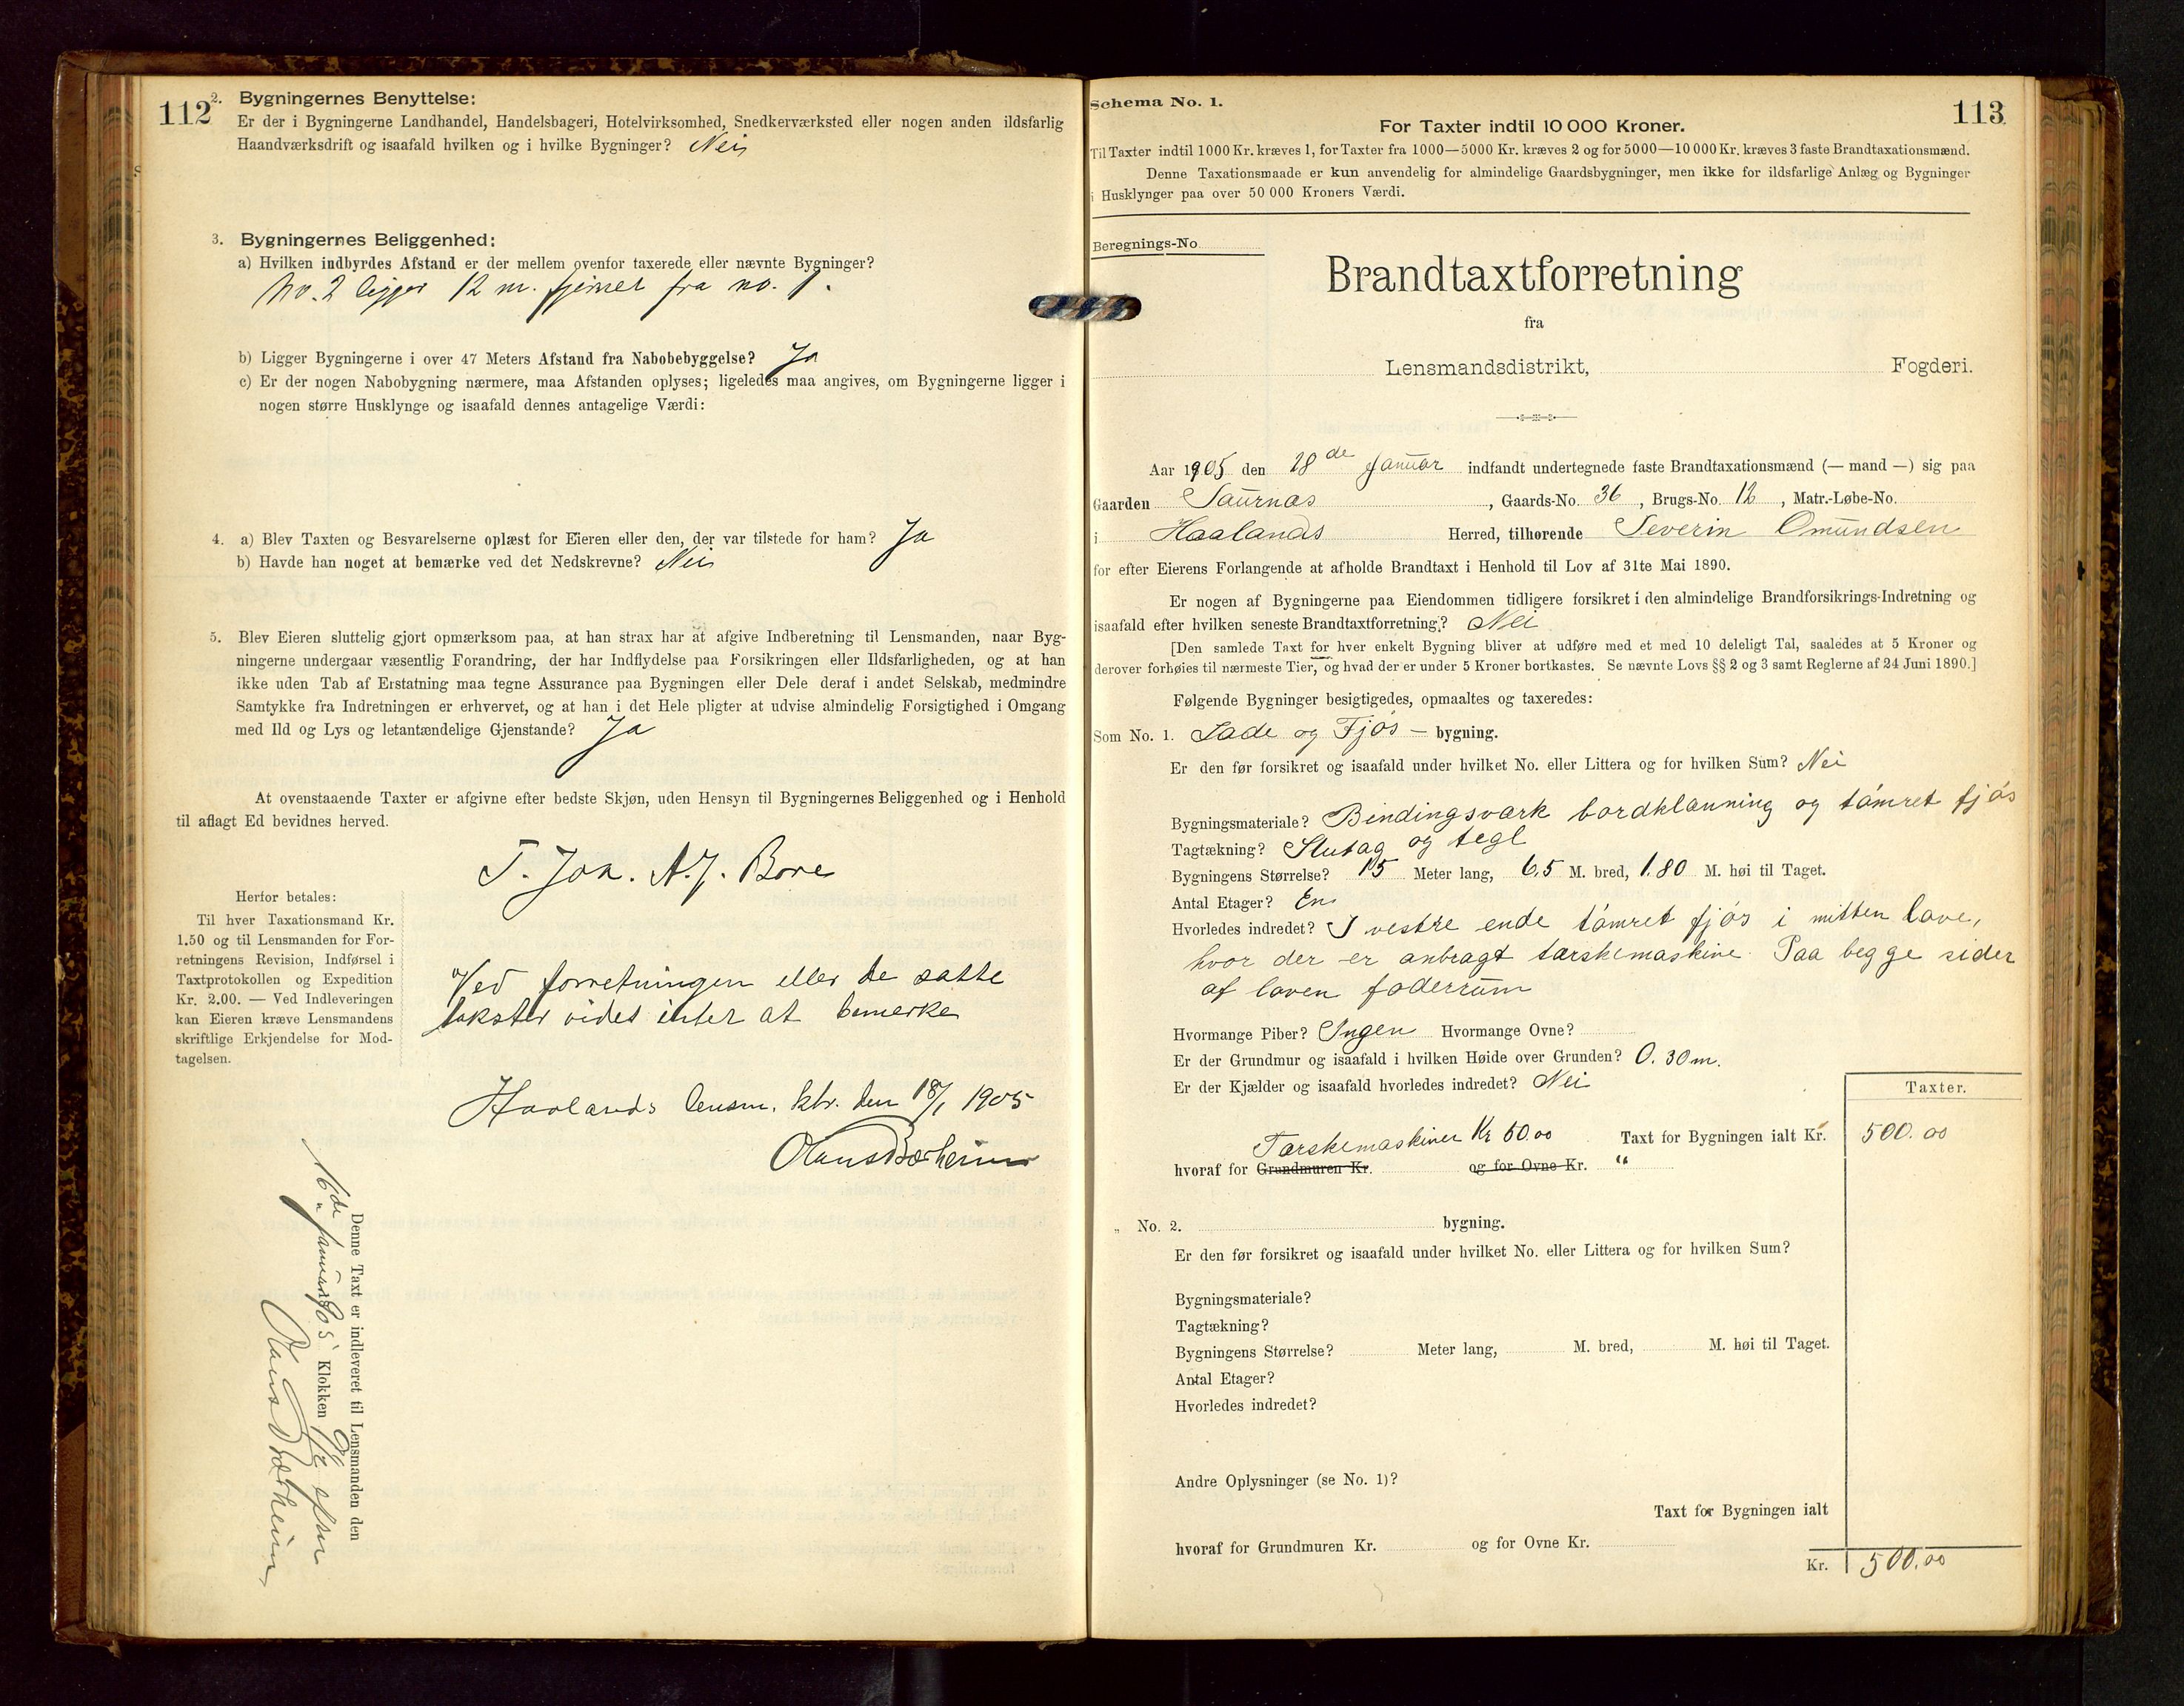 112
2. Bygningernes Benyttelse:
Er der i Bygningerne Landhandel, Handelsbageri, Hotelvirksomhed, Snedkerværksted eller nogen anden ildsfarlig
Haandværksdrift og isaafald hvilken og i hvilke Bygninger? Nei
3. Bygningernes Beliggenhed:
a) Hvilken indbyrdes Afstand er der mellem ovenfor taxerede eller nævnte Bygninger?
No. 2 ligger 12 m. fjernet fra no. 1.
b) Ligger Bygningerne i over 47 Meters Afstand fra Nabobebyggelse? Ja
c) Er der nogen Nabobygning nærmere, maa Afstanden oplyses; ligeledes maa angives, om Bygningerne ligger i
nogen større Husklynge og isaafald dennes antagelige Værdi:
4. a) Blev Taxten og Besvarelserne oplæst for Eieren eller den, der var tilstede for ham? Ja
b) Havde han noget at bemærke ved det Nedskrevne? Nei
5. Blev Eieren sluttelig gjort opmærksom paa, at han strax har at afgive Indberetning til Lensmanden, naar Byg-
ningerne undergaar væsentlig Forandring, der har Indflydelse paa Forsikringen eller Ildsfarligheden, og at han
ikke uden Tab af Erstatning maa tegne Assurance paa Bygningen eller Dele deraf i andet Selskab, medmindre
Samtykke fra Indretningen er erhvervet, og at han i det Hele pligter at udvise almindelig Forsigtighed i Omgang
med Ild og Lys og letantændelige Gjenstande? Ja
At ovenstaaende Taxter er afgivne efter bedste Skjøn, uden Hensyn til Bygningernes Beliggenhed og i Henhold
til aflagt Ed bevidnes herved.
T. Joa. A. J. Bore
Herfor betales:
Til hver Taxationsmand Kr.
1.50 og til Lensmanden for For-
retningens Revision, Indførsel i
Taxtprotokollen og Expedition
Kr. 2.00. — Ved Indleveringen
kan Eieren kræve Lensmandens
skriftlige Erkjendelse for Mod-
tagelsen.
Ved forretningen eller de satte
takster vides intet at bemerke
Haalands lensm. ktr. den 18/1 1905
Olaus Bærheim
Denne Taxt er indleveret til Lensmanden den
16de januar 1905 Klokken efter
Olaus Bærheim
113
Schema No. 1.
For Taxter indtil 10 000 Kroner.
Til Taxter indtil 1000 Kr. kræves 1, for Taxter fra 1000—5000 Kr. kræves 2 og for 5000—10 000 Kr. kræves 3 faste Brandtaxationsmænd.
Denne Taxationsmaade er kun anvendelig for almindelige Gaardsbygninger, men ikke for ildsfarlige Anlæg og Bygninger
i Husklynger paa over 50 000 Kroners Værdi.
Beregnings-No.
Brandtaxtforretning
fra
Lensmandsdistrikt, Fogderi.
Aar 1905 den 18de Januar indfandt undertegnede faste Brandtaxationsmænd (— mand —) sig paa
Gaarden Saurnæs, Gaards-No. 36, Brugs-No. 12, Matr.-Løbe-No.
i Haalands Herred, tilhørende Severin Omundsen
for efter Eierens Forlangende at afholde Brandtaxt i Henhold til Lov af 31te Mai 1890.
Er nogen af Bygningerne paa Eiendommen tidligere forsikret i den almindelige Brandforsikrings-Indretning og
isaafald efter hvilken seneste Brandtaxtforretning? Nei
[Den samlede Taxt for hver enkelt Bygning bliver at udføre med et med 10 deleligt Tal, saaledes at 5 Kroner og
derover forhøies til nærmeste Tier, og hvad der er under 5 Kroner bortkastes. Se nævnte Lovs §§ 2 og 3 samt Reglerne af 24 Juni 1890.]
Følgende Bygninger besigtigedes, opmaaltes og taxeredes:
Som No. 1. Lade og Fjøs — bygning.
Er den før forsikret og isaafald under hvilket No. eller Littera og for hvilken Sum? Nei
Bygningsmateriale? Bindingsværk bordklænning og tømret fjøs
Tagtækning? Stutag og tegl
Bygningens Størrelse? 15 Meter lang, 6,5 M. bred, 1.80 M. høi til Taget.
Antal Etager? En
Hvorledes indredet? I vestre ende tømret fjøs i mitten lave,
hvor der er anbragt tærskemaskine. Paa begge sider
af laven foderrum
Hvormange Piber? Ingen Hvormange Ovne?
Er der Grundmur og isaafald i hvilken Høide over Grunden? 0.30 m.
Er der Kjælder og isaafald hvorledes indredet? Nei
Taxter.
Tærskemaskinen Kr 50.00 Taxt for Bygningen ialt Kr. 500.00
hvoraf for Grundmuren Kr. og for Ovne Kr. "
„ No. 2. bygning.
Er den før forsikret og isaafald under hvilket No. eller Littera og for hvilken Sum?
Bygningsmateriale?
Tagtækning?
Bygningens Størrelse? Meter lang, M. bred, M. høi til Taget.
Antal Etager?
Hvorledes indredet?
Andre Oplysninger (se No. 1)?
Taxt for Bygningen ialt
hvoraf for Grundmuren Kr. og for Ovne Kr.
Kr. 500.00